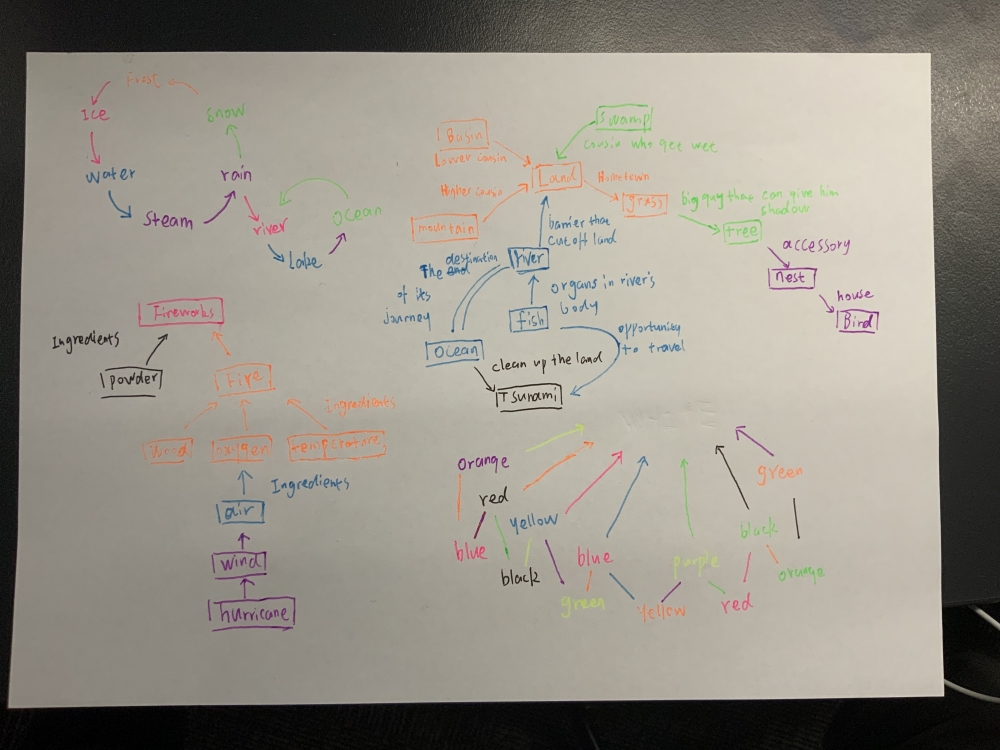 Frost
Ice
Snow
Water
rain
Steam
river
Ocean
Lake
Basin
Lower cousin
Swamp
cousin who get wet
Land
Hometown
Higher cousin
mountain
grass
big guy that can give him
shadow
tree
accessory
nest
house
Bird
barrier that
cut off land
river
The destination
of its
journey
organs in river's
body
fish
opportunity
to travel
Ocean
clean up the land
Tsunami
Fireworks
Ingredients
powder
Fire
Ingredients
oxygen
temperature
Ingredients
air
wind
hurricane
WHITE
orange
red
yellow
blue
black
blue
green
purple
yellow
red
black
green
orange